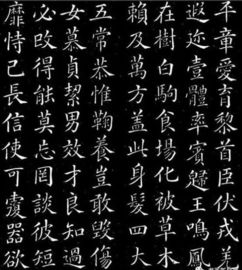 平章愛育黎首臣伏戎羌
遐迩壹體率賓歸王鳴鳳
在樹白駒食場化被草木
賴及萬方蓋此身髮四大
五常恭惟鞠養豈敢毀傷
女慕貞絜男效才良知過
必改得能莫忘罔談彼短
靡恃己長信使可覆器欲